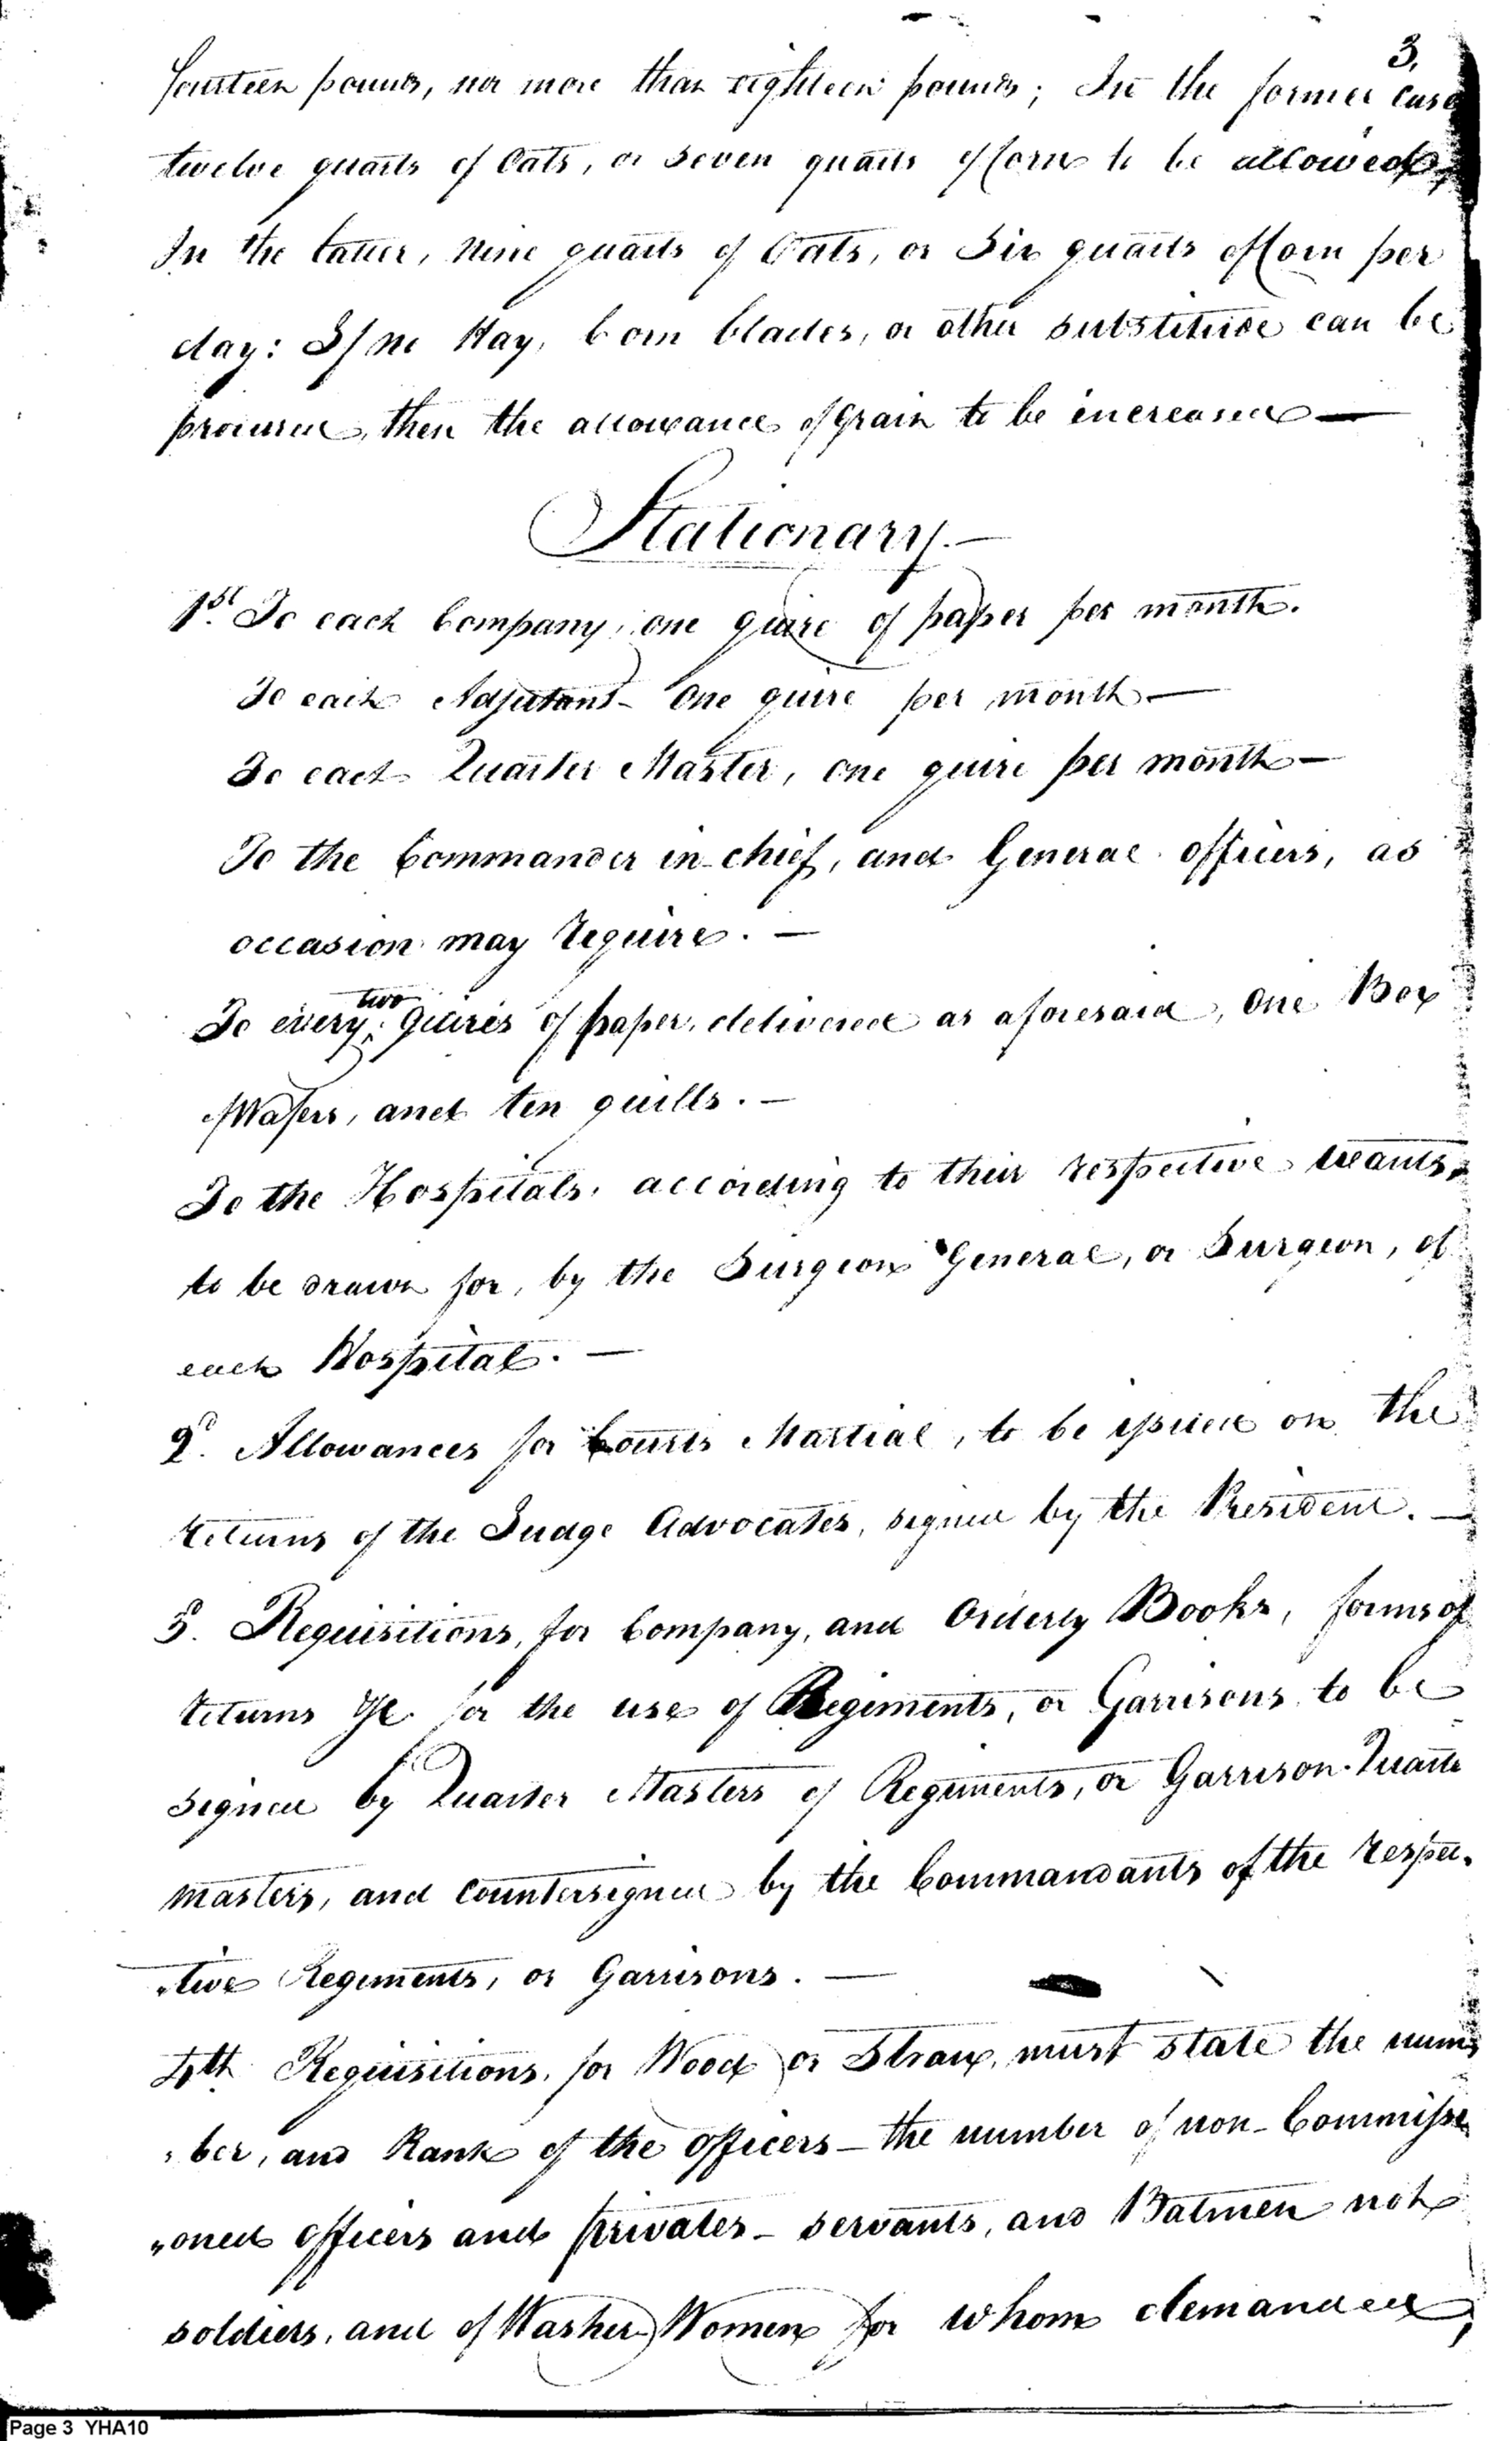 3,
fourteen pounds, nor more than eighteen pounds; In the former case
twelve quarts of Oats, or seven quarts of Corn to be allowed,
In the latter, nine quarts of Oats, or Six quarts of Corn per
day: If no Hay, Corn blades, or other substitute can be
procured, then the allowance of Grain to be increased —
Stationary. —
1st. To each Company, one quire of paper per month.
To each Adjutant - One quire per month —
To each Quarter Master, one quire per month —
To the Commander in-chief, and General officers, as
occasion may require. —
two
To every, quires of paper, delivered as aforesaid, One Box
of Wafers, and ten quills. —
To the Hospitals, according to their respective wants,
to be drawn for, by the Surgeon General, or Surgeon, of
each Hospital. —
2d. Allowances for Courts Martial, to be issued on the
returns of the Judge Advocates, signed by the President. —
3d. Requisitions, for Company, and Orderly Books, forms of
returns &c. for the use of Regiments, or Garrisons to be
signed by Quarter Masters of Regiments, or Garrison-Quarter
masters, and Countersigned by the Commandants of the respec-
-tive Regiments, or Garrisons. —
4th. Requisitions, for Wood or Straw, must state the num-
-ber, and Rank of the Officers — the number of non-Commissi
"oned Officers and privates - servants, and Batmen not
soldiers, and of Washer Women for whom demanded,
Page 3 YHA10